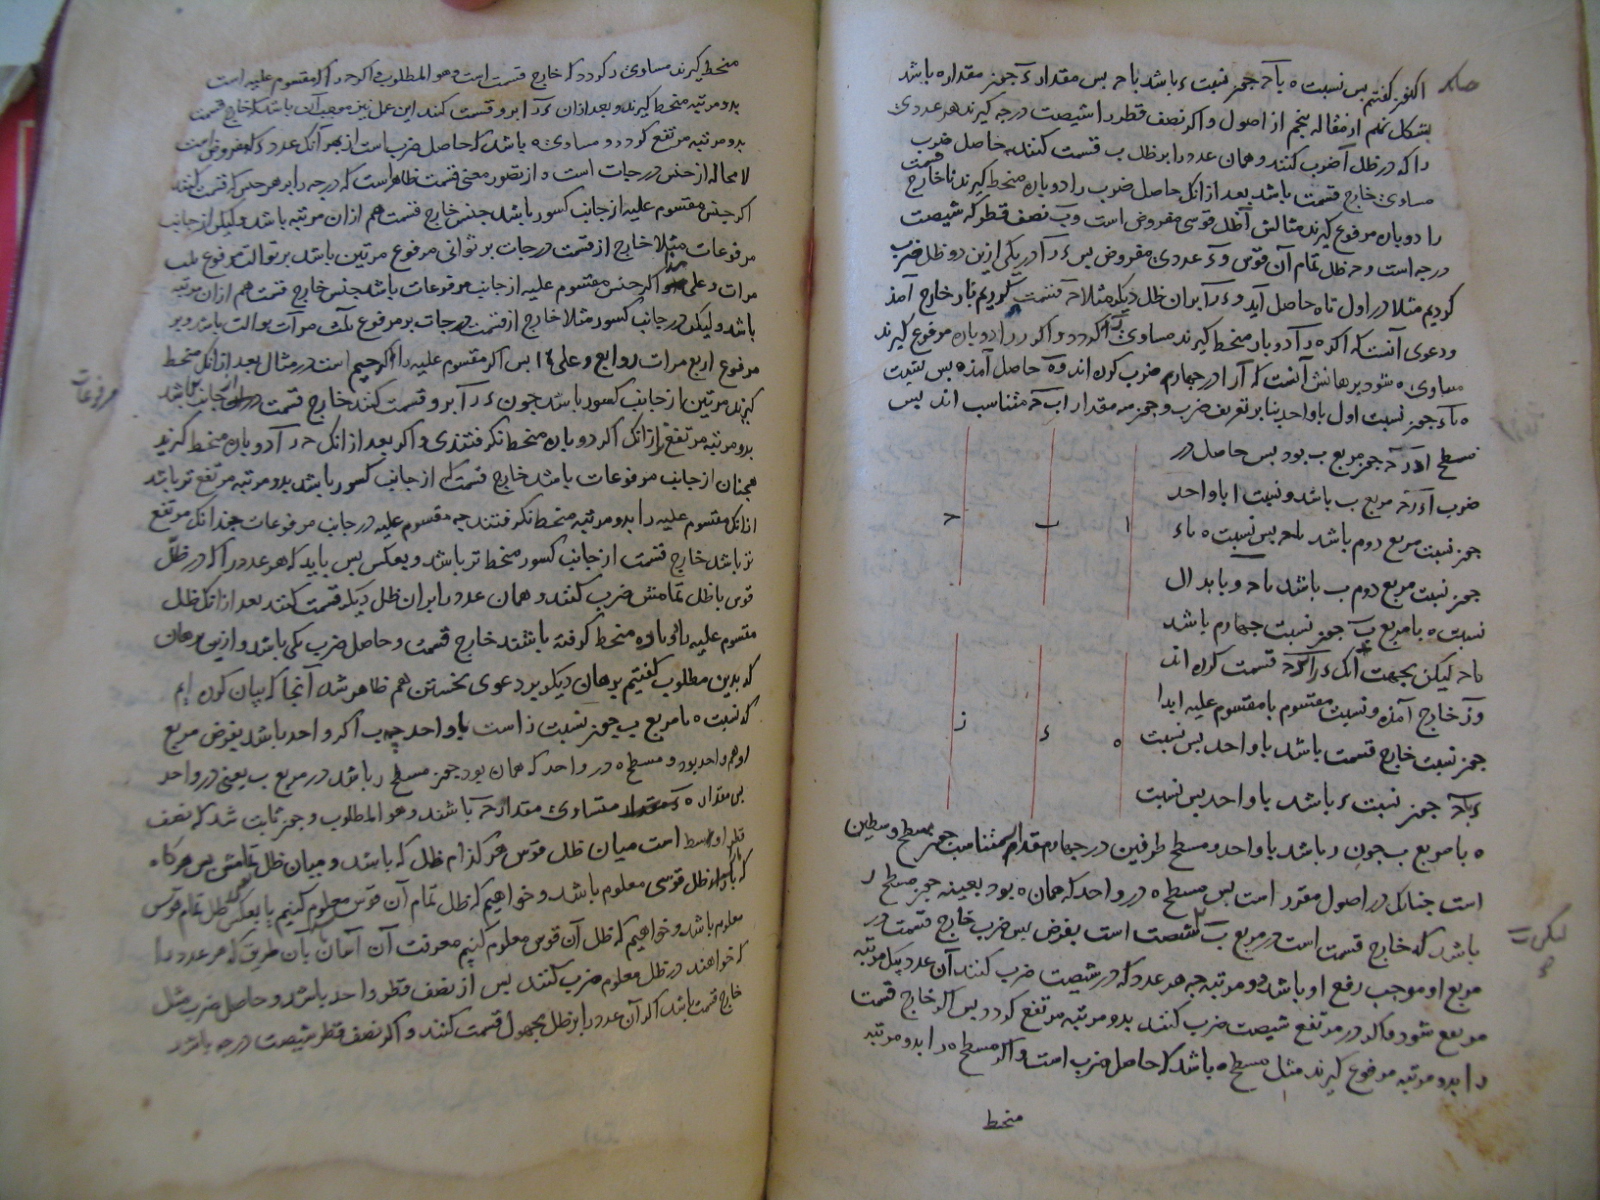 اکنون کفتم پس نسبت ه با ح جمچو نسبت ء باشد با ح پس مقدار ء جمچو مقدار ه باشد
بشکل نهم از مقاله پنجم از اصول و اکر نصف قطر را شصت درجه کیرند هر عددی
را که در ظل آ ضرب کنند و همان عدد را بر ظل ب قسمت کنند حاصل ضرب
مساوی خارج قسمت باشد بعد از آنک حاصل ضرب را دو باره منحط کیرند تا خارج قسمت
را دو باره مرفوع کیرند مثالش آ ظل قوسی مفروض است و ب نصف قطر که شصت
درجه است و ح ظل تمام آن قوس و ء عددی مفروض پس ء را در یکی ازین دو ظل ضرب
کردیم مثلا در اول تا ه حاصل آید و ء را بران ظل دیکر مثلا ح قسمت کردیم تا ر خارج آمد
و دعوی آنست که اکر ه را دو بار منحط کیرند مساوی ر کردد و اکر ر را دو باره مرفوع کیرند
مساوی ه شود برهانش آنست که آ را در چهارم ضرب کرده اند و ه حاصل آمده پس نسبت
ه باء جمچو نسبت اول با واحد بنا بر تعریف ضرب و جمچو سه مقدار ا ب ح متناسب اند پس
مسطح ا در ح جمچو مربع ب بود پس حاصل در
ضرب آ در ح مربع ب باشد و نسبت ا با واحد
جمچو نسبت مربع دوم باشد با ح پس نسبت ه باء
جمچو نسبت مربع دوم ب باشد با ح و بابدال
نسبت ه با مربع ب جمچو نسبت چهارم باشد
با ح لیکن بجهت آنک ء را بر ح قسمت کرده اند
و ز خارج آمده و نسبت مقسوم با مقسوم علیه ابدا
جمچو نسبت خارج قسمت باشد با واحد پس نسبت
ء با ح جمچو نسبت ء باشد با واحد پس نسبت
ا ب ح
ه ء ز
ه با مربع ب جون ر باشد با واحد و مسطح طرفین در چهارم مقدار متناسب جمچو مسطح وسطین
است چنانک در اصول مقرر است پس مسطح ه در واحد که همان ه بود بعینه جمچو مسطح ر
باشد که خارج قسمت است در مربع ب که شصت است بفرض پس ضرب خارج قسمت در
مربع او موجب رفع او باشد دو مرتبه چه هر عدد که در شصت ضرب کنند آن عدد یک مرتبه
مرتفع شود و اکر در مرتفع شصت ضرب کنند بدو مرتبه مرتفع کردد پس اکر خارج قسمت
را بدو مرتبه مرفوع کیرند مثل مسطح ه باشد که حاصل ضرب است و اکر مسطح ه را بدو مرتبه
منحط
منحط کیرند مساوی ر کردد که خارج قسمت است و هو المطلوب و اکر ح را که مقسوم علیه است
بدو مرتبه منحط کیرند و بعد از ان ء را بر او قسمت کنند این عمل نیز موجب آن باشد که خارج قسمت
بدو مرتبه مرتفع کردد و مساوی ه باشد که حاصل ضرب است از بهر آنک عدد ء که مفروض است
لا محاله از جنس درجات است و از تصور معنی قسمت ظاهر است که درجه را بهر جنس که قسمت کنند
اکر جنس مقسوم علیه از جانب کسور باشد جنس خارج قسمت هم از ان مرتبه باشد و لیکن از جانب
مرفوعات مثلا خارج از قسمت درجات بر ثوانی مرفوع مرتین باشد بر ثوالث مرفوع ثلث
مرات و علی هذا و اکر جنس مقسوم علیه از جانب مرفوعات باشد جنس خارج قسمت هم از ان مرتبه
باشد و لیکن در جانب کسور مثلا خارج از قسمت درجات بر مرفوع ثلث مرات ثوالث باشد و بر
مرفوع اربع مرات روابع و علی هذا پس اکر مقسوم علیه را که جیم است در مثال بعد از آنک منحط
کیرند مرتین از جانب کسور باشد چون ء را بر او قسمت کنند خارج قسمت از جانب باشد
مرفوعات
بدو مرتبه مرتفع تر از انک اکر دو باره منحط نکرفتندی و اکر بعد از انک ح را دو باره منحط کیرند
همچنان از جانب مرفوعات باشد خارج قسمت که از جانب کسور باشد بدو مرتبه مرتفع تر باشد
از انک مقسوم علیه را بدو مرتبه منحط نکرفتند چه مقسوم علیه در جانب مرفوعات چندانک مرتفع
تر باشد خارج قسمت از جانب کسور منحط تر باشد و بعکس پس باید که هر عدد را که در ظل
قوس یا ظل تمامش ضرب کنند و همان عدد را بران ظل دیکر قسمت کنند بعد از انک ظل
مقسوم علیه را دو باره منحط کرفته باشند خارج قسمت و حاصل ضرب یکی باشد و ازین برهان
که بدین مطلوب کفتیم برهان دیکر بر دعوی نخستین هم ظاهر شد آنجا که بیان کرده ایم
که نسبت ه با مربع ب جمچو نسبت ز است با واحد چه ب اکر واحد باشد بفرض مربع
او هم واحد بود و مسطح ه در واحد که همان بود جمچو مسطح ر باشد در مربع ب یعنی در واحد
پس مقدار ه متساوی مقدار ح باشند و هو المطلوب و جمچو ثابت شد که نصف
قطر اوسط است میان ظل قوس هر کدام ظل که باشد و میان ظل تمامش پس هر کاه
که ظل قوسی معلوم باشد و خواهیم که ظل تمام آن قوس معلوم کنیم یا بعکس ظل تمام قوس
معلوم باشد و خواهیم که ظل آن قوس معلوم کنیم معرفت آن آسان بآن طریق که هر عدد را
که خواهند در ظل معلوم ضرب کنند پس از نصف قطر واحد باشد و حاصل ضرب مثل
خارج قسمت باشد اکر آن عدد را بر ظل مجهول قسمت کنند و اکر نصف قطر شصت درجه باشد